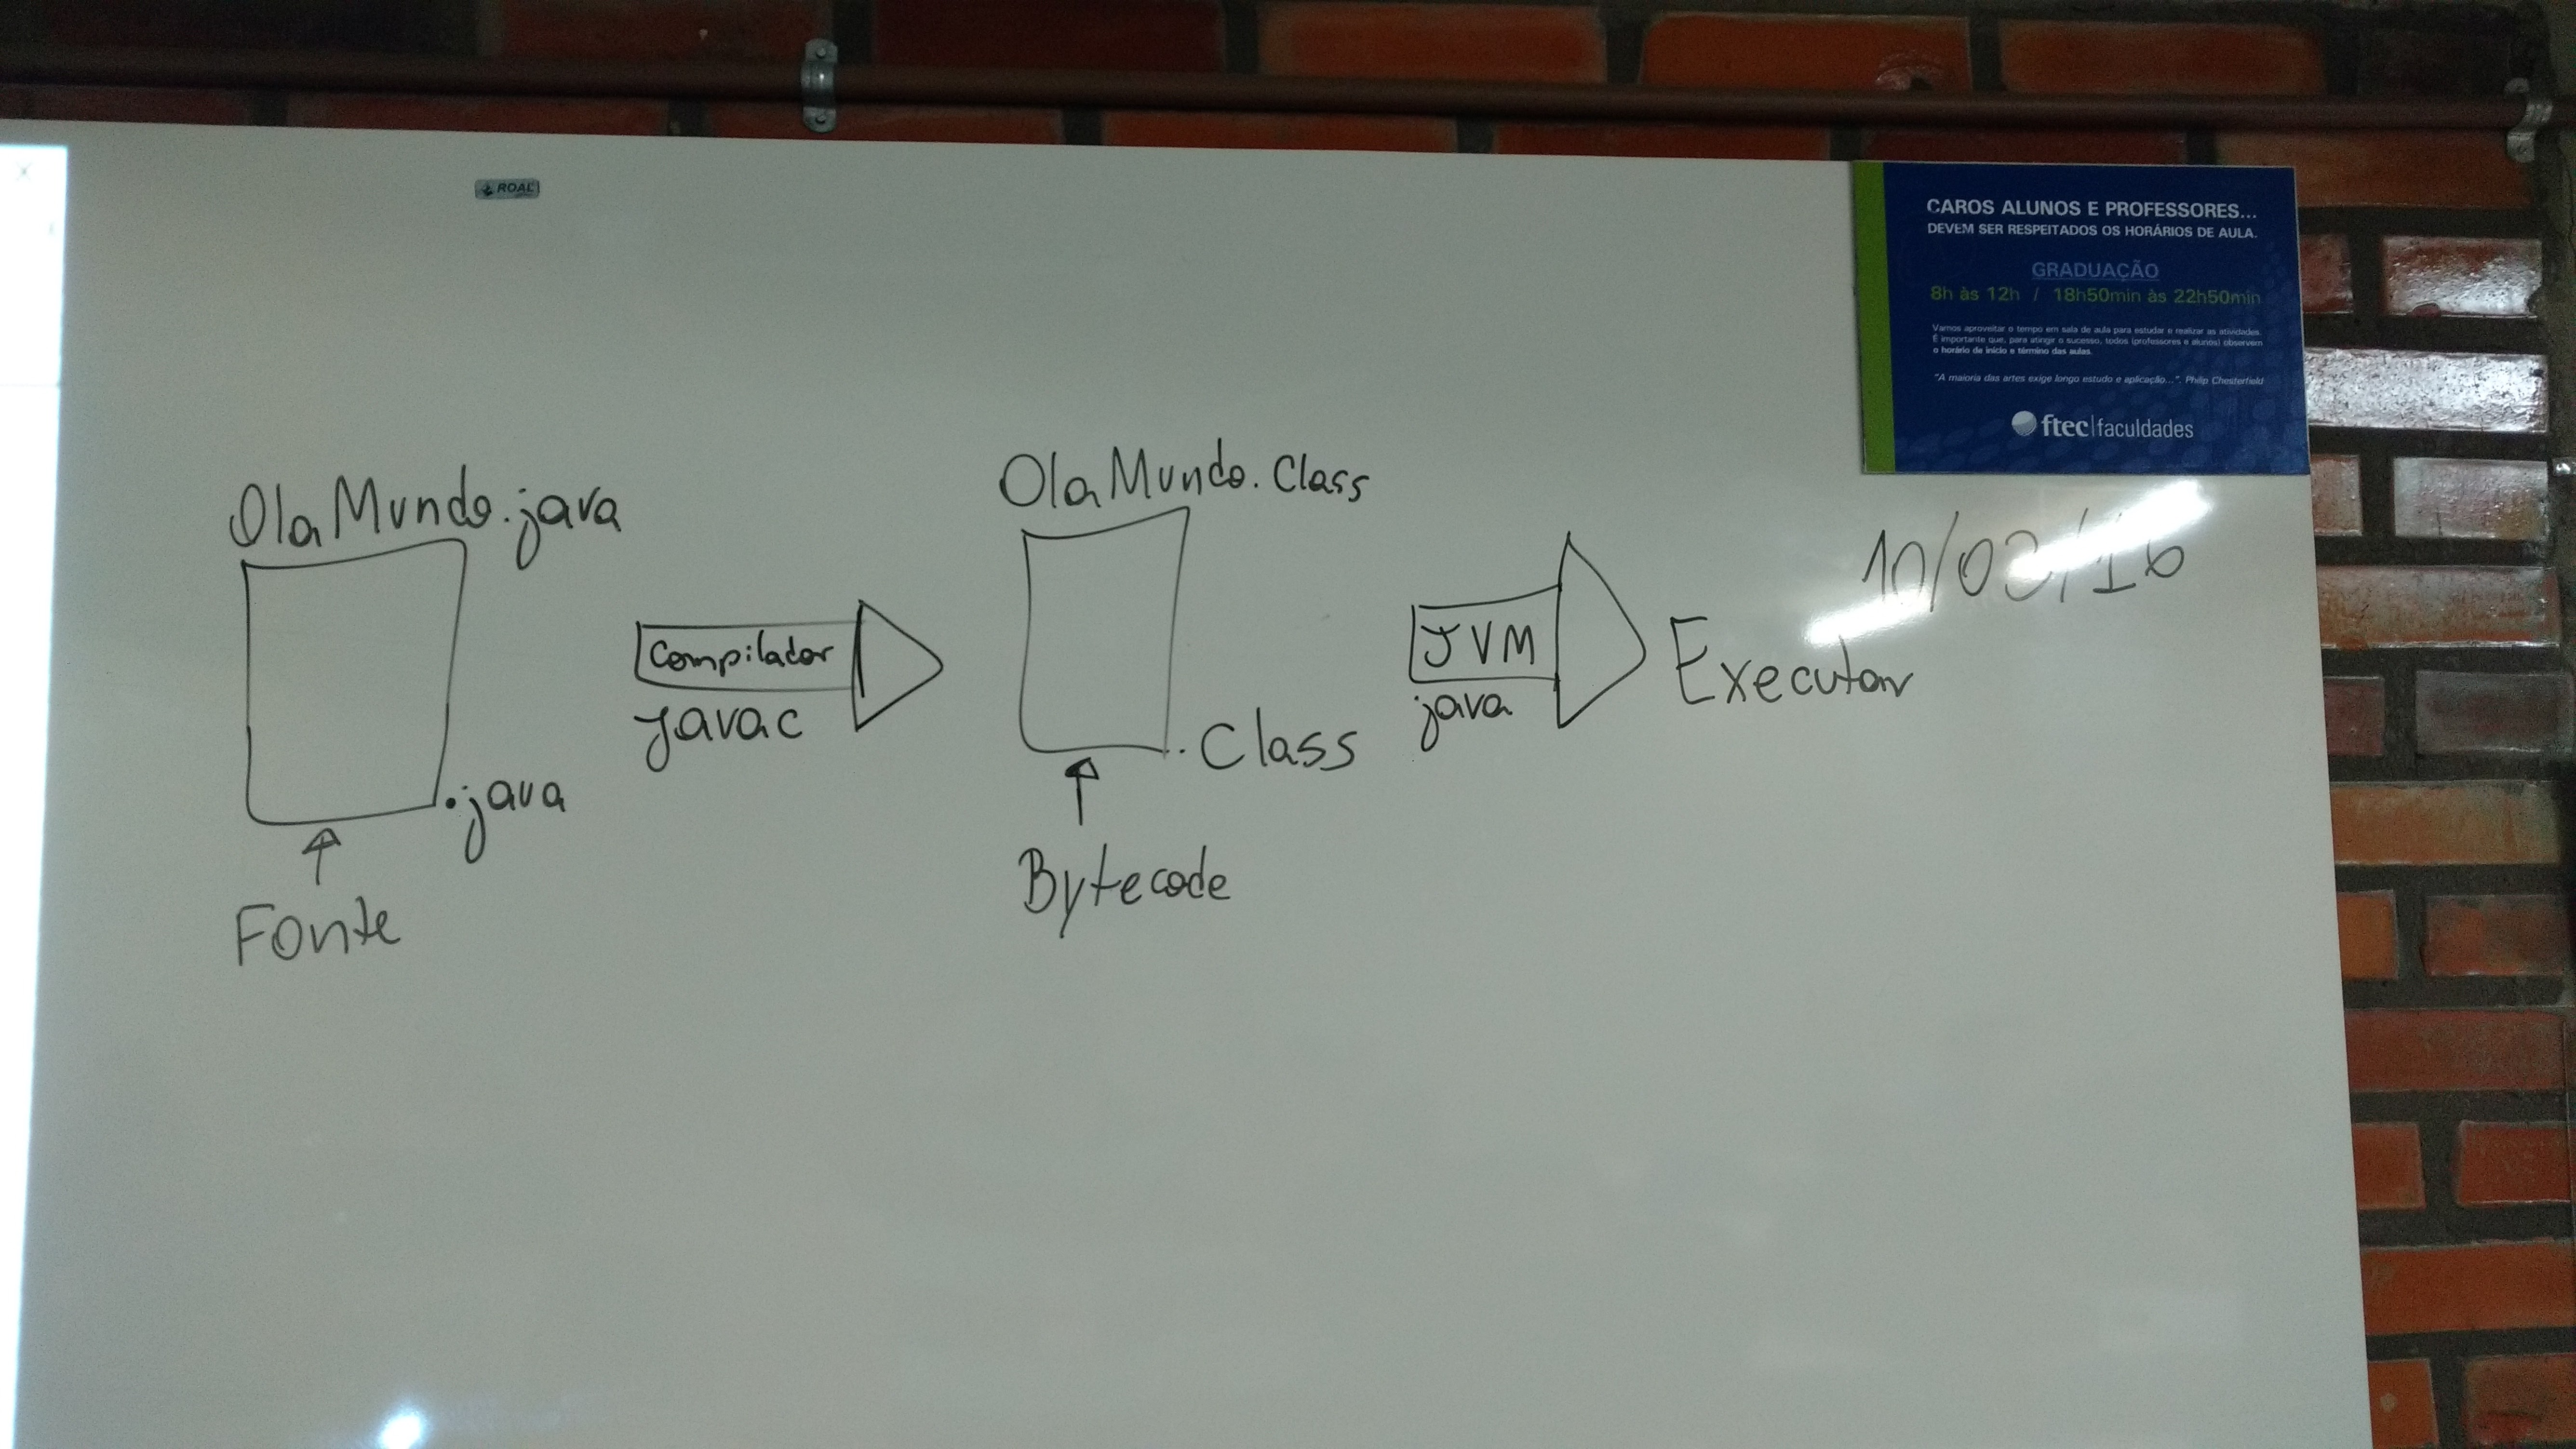 ROAL
CAROS ALUNOS E PROFESSORES...
DEVEM SER RESPEITADOS OS HORÁRIOS DE AULA.
GRADUAÇÃO
8h às 12h / 18h50min às 22h50min
Vamos aproveitar o tempo em sala de aula para estudar e realizar as atividades.
É importante que, para atingir o sucesso, todos (professores e alunos) observem
o horário de início e término das aulas.
"A maioria das artes exige longo estudo e aplicação...". Philip Chesterfield
ftec faculdades
OlaMundo.java
OlaMundo.Class
10/03/16
Compilador
javac
JVM
java
Executar
.java
.Class
Fonte
Bytecode